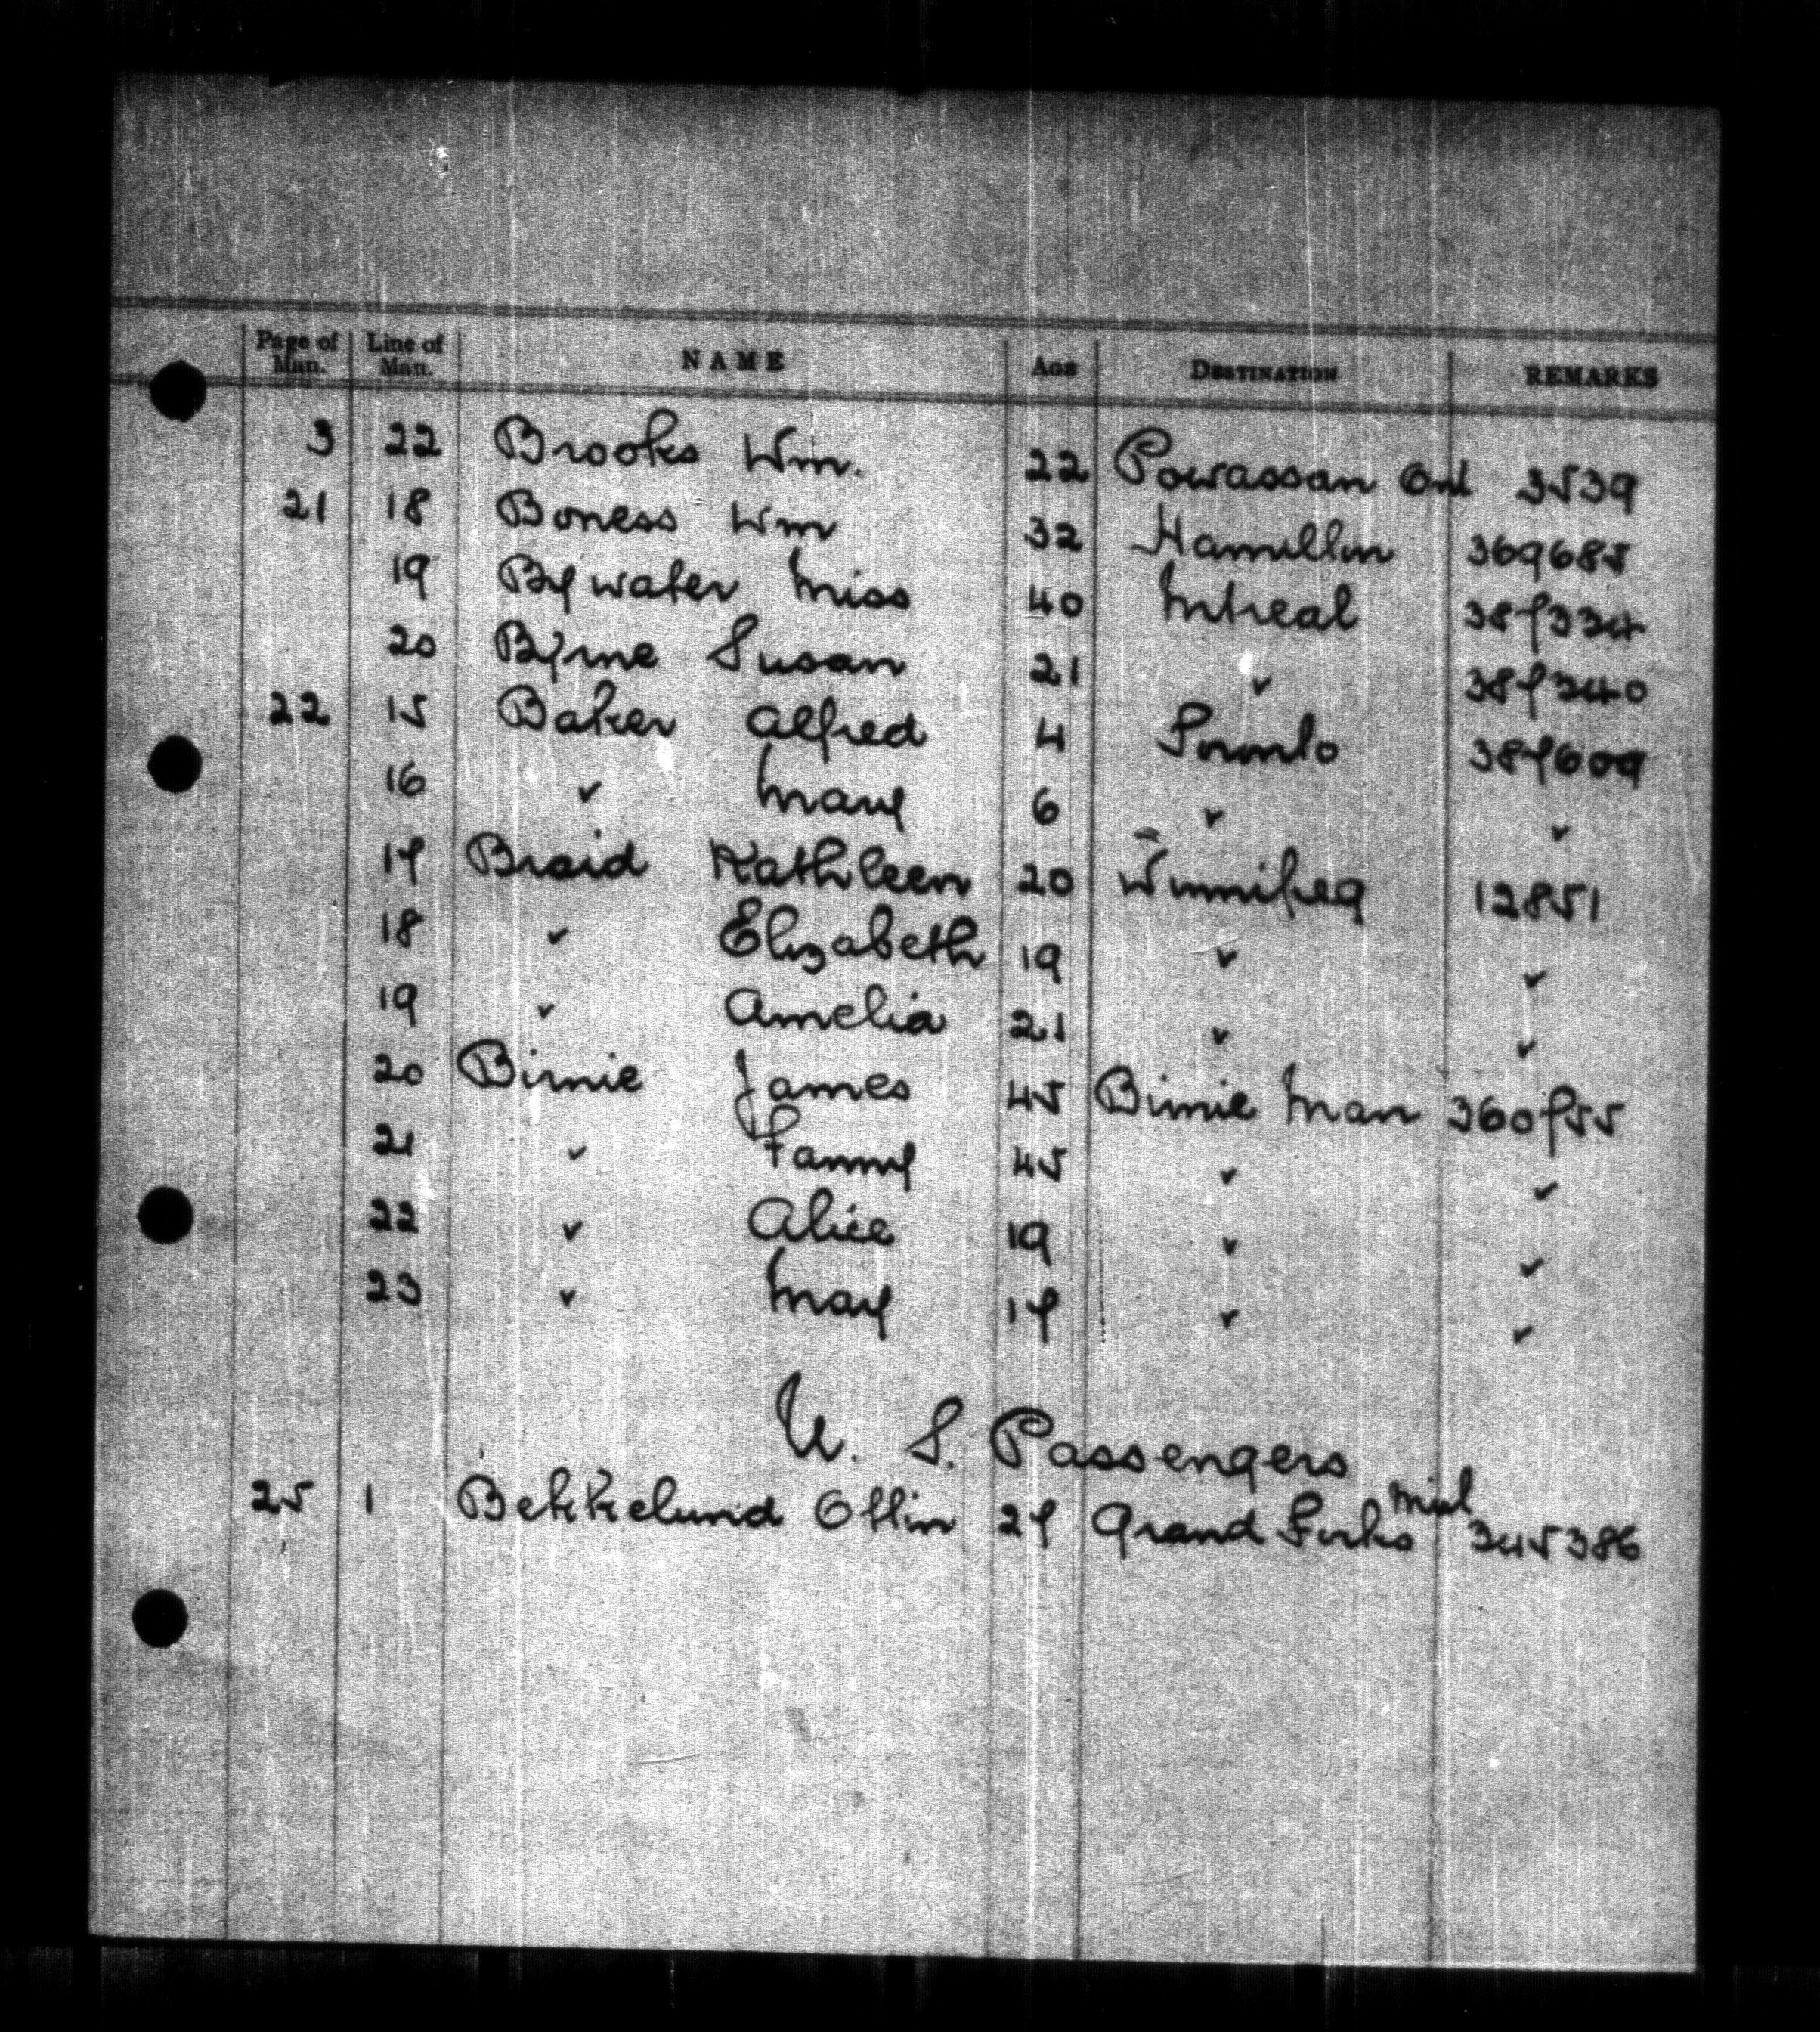 Page of Man. Line of Man. NAME AGE DESTINATION REMARKS
3 22 Brooks Wm. 22 Powassan Ont 3539
21 18 Boness Wm 32 Hamilton 369685
19 Bywater Miss 40 Mtreal 387334
20 Byrne Susan 21 " 387340
22 15 Baker Alfred 4 Toronto 387609
16 " Mary 6 " "
17 Braid Kathleen 20 Winnipeg 12851
18 " Elizabeth 19 " "
19 " Amelia 21 " "
20 Birnie James 45 Birnie Man 360755
21 " Fanny 45 " "
22 " Alice 19 " "
23 " May 17 " "
U. S. Passengers
25 1 Bekkelund Ottin 27 Grand Forks 345386